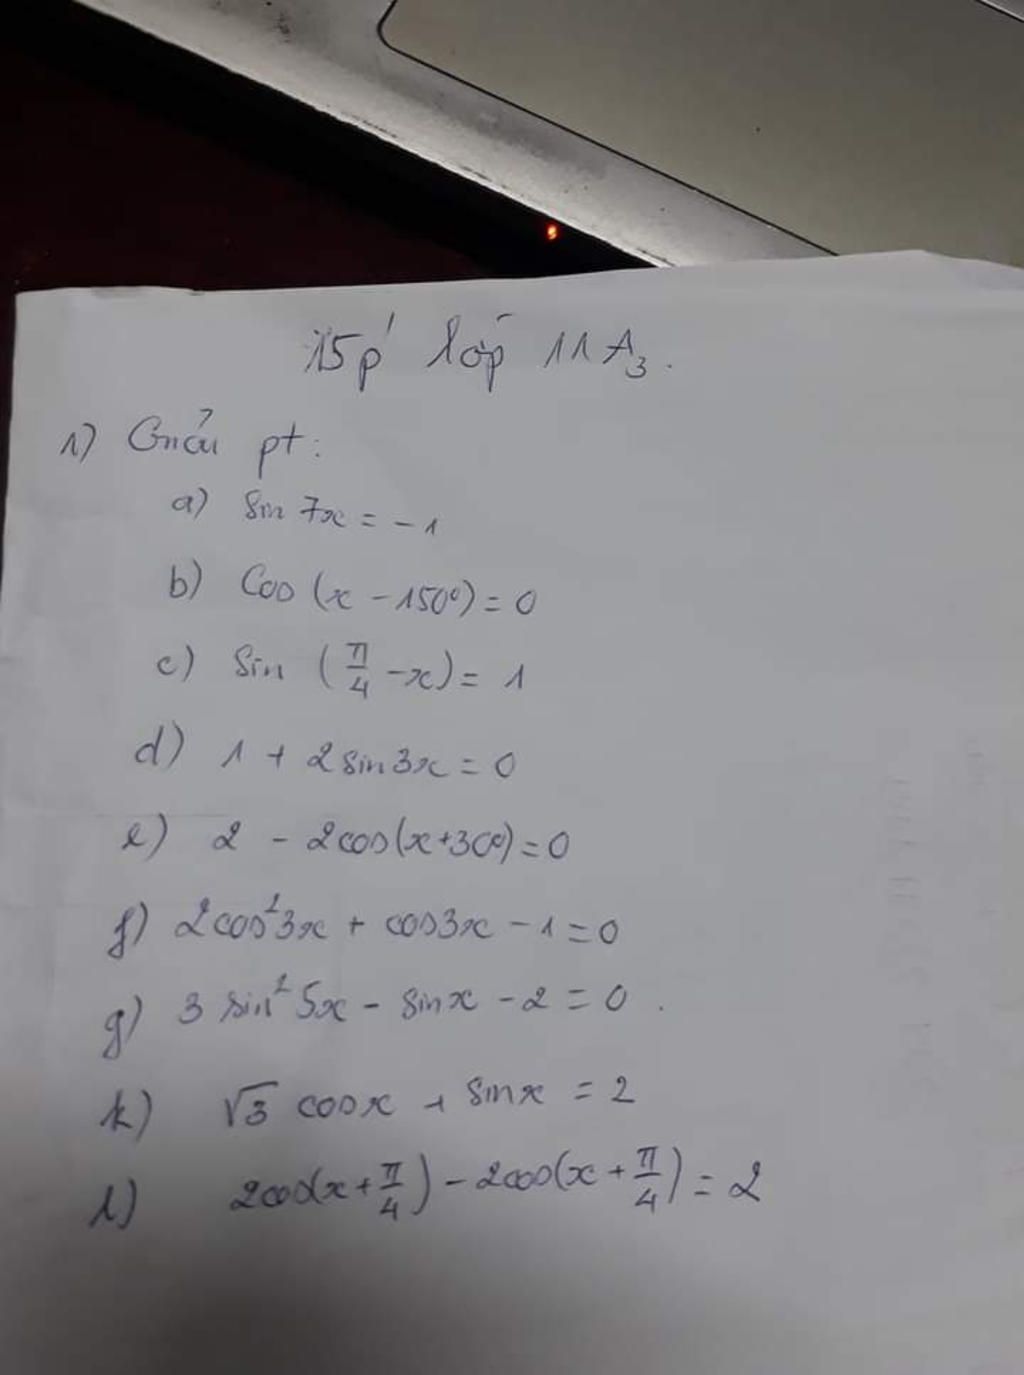 15p' lớp 11A₃.
1) Giải pt:
a) Sin 7x = -1
b) Cos (x - 150°) = 0
c) Sin (π/4 - x) = 1
d) 1 + 2 sin 3x = 0
e) 2 - 2cos(x + 30°) = 0
f) 2cos²3x + cos3x - 1 = 0
g) 3 sin²5x - sinx - 2 = 0.
k) √3 cosx + sinx = 2
l) 2cos(x + π/4) - 2cos(x + π/4) = 2